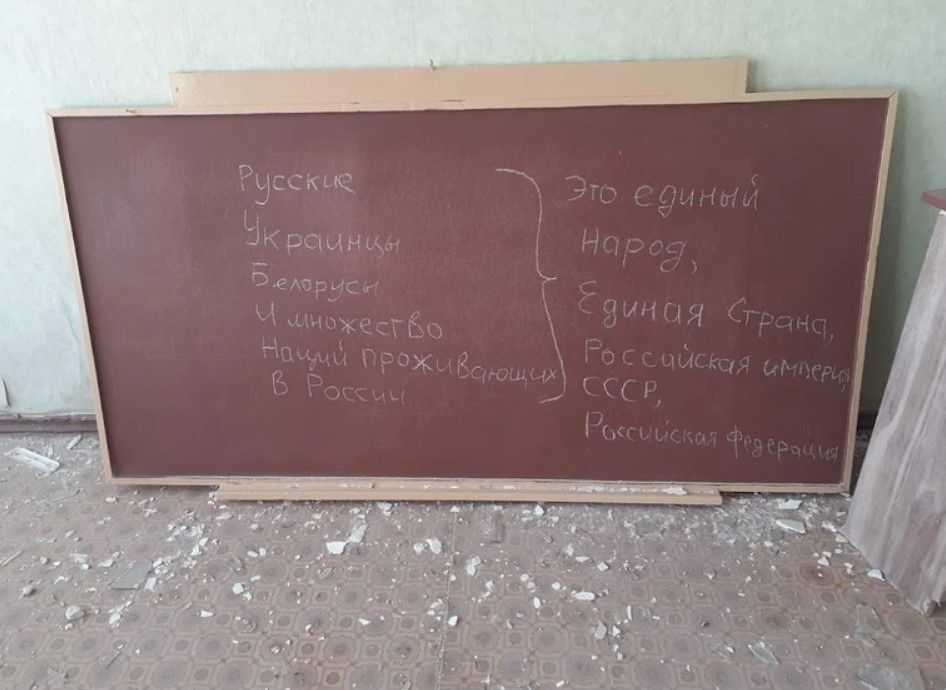 Русские
Украинцы
Белорусы
И множество
Наций проживающих
в России
Это единый
народ,
Единая Страна,
Российская империя,
СССР,
Российская Федерация